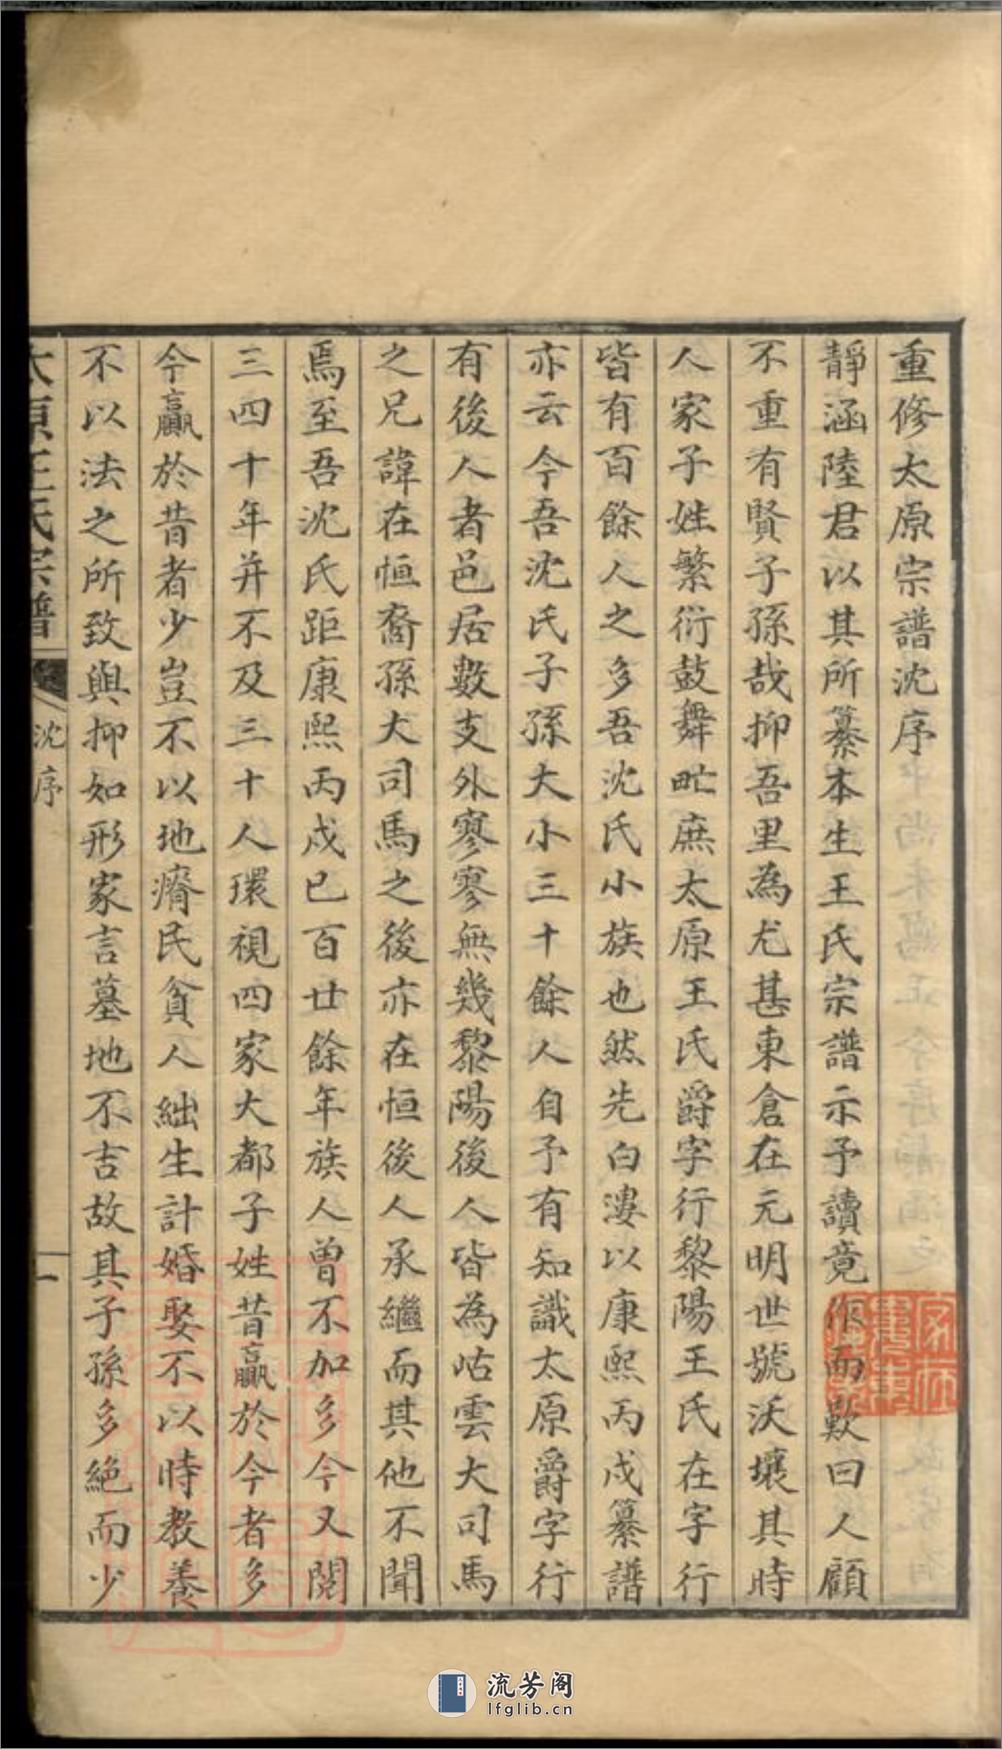 重修太原宗譜沈序
靜涵陸君以其所纂本生王氏宗譜示予讀竟作而歎曰人顧
不重有賢子孫哉抑吾里為尤甚東倉在元明世號沃壤其時
人家子姓繁衍鼓舞甿庶太原王氏爵字行黎陽王氏在字行
皆有百餘人之多吾沈氏小族也然先白漊以康熙丙戍纂譜
亦云今吾沈氏子孫大小三十餘人自予有知識太原爵字行
有後人者邑居數支外寥寥無幾黎陽後人皆為岵雲大司馬
之兄諱在恒裔孫大司馬之後亦在恒後人承繼而其他不聞
焉至吾沈氏距康熙丙戍已百廿餘年族人曾不加多今又閱
三四十年并不及三十人環視四家大都子姓昔贏於今者多
今贏於昔者少豈不以地瘠民貧人絀生計婚娶不以時教養
不以法之所致與抑如形家言墓地不吉故其子孫多絕而少
太原王氏宗譜
沈序
一
流芳阁
lfglib.cn